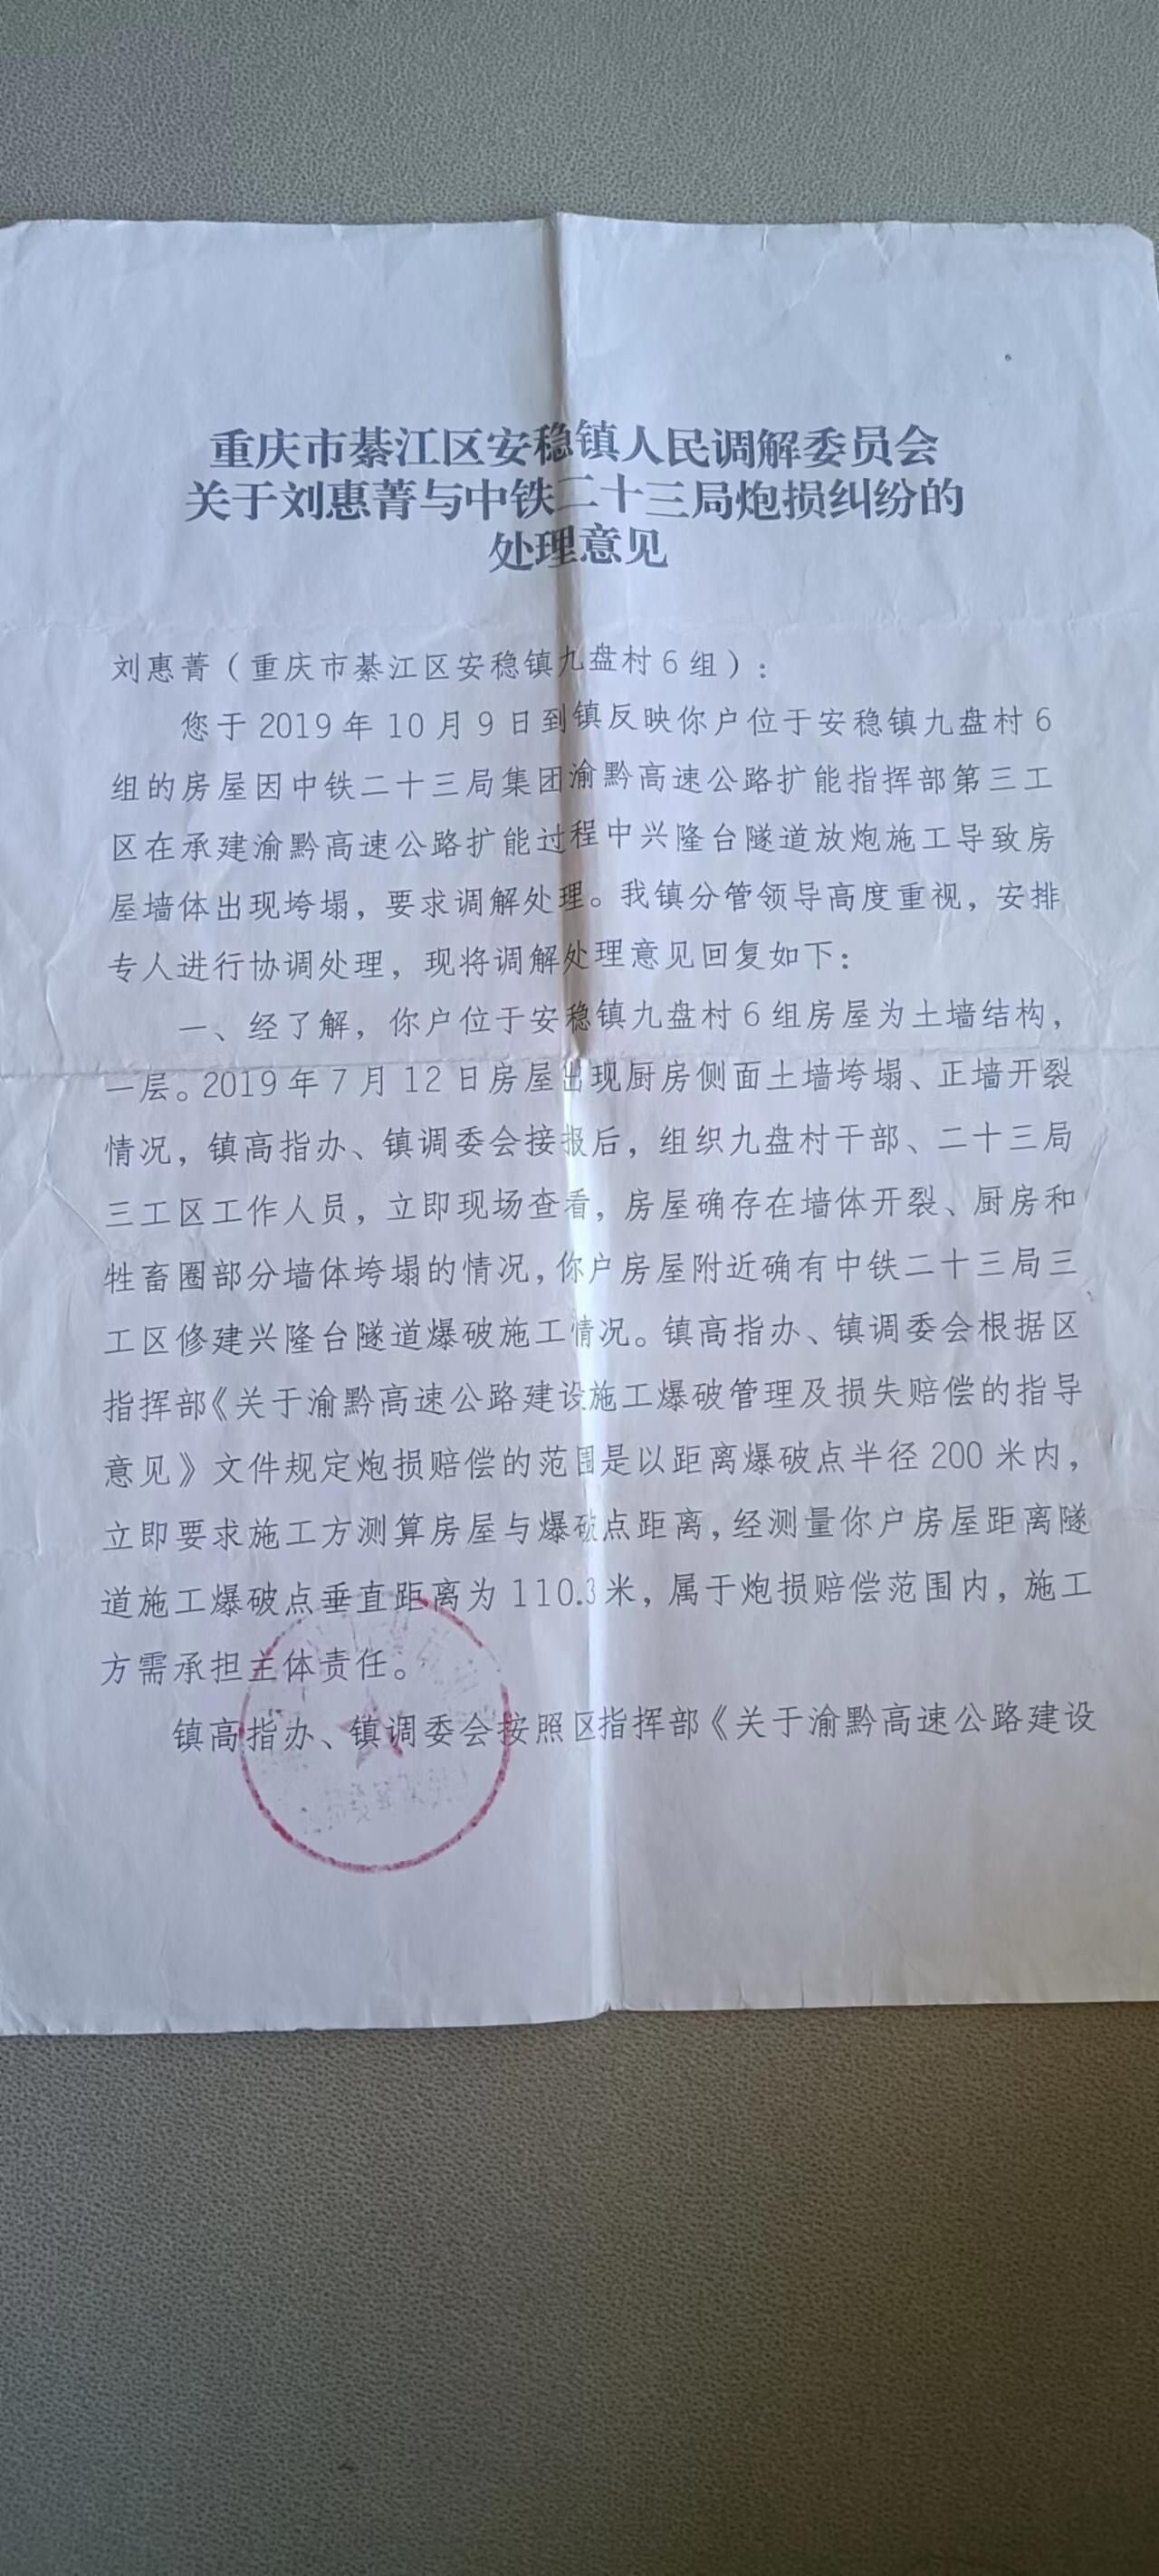 重庆市綦江区安稳镇人民调解委员会
关于刘惠菁与中铁二十三局炮损纠纷的
处理意见
刘惠菁（重庆市綦江区安稳镇九盘村6组）：
您于2019年10月9日到镇反映你户位于安稳镇九盘村6
组的房屋因中铁二十三局集团渝黔高速公路扩能指挥部第三工
区在承建渝黔高速公路扩能过程中兴隆台隧道放炮施工导致房
屋墙体出现垮塌，要求调解处理。我镇分管领导高度重视，安排
专人进行协调处理，现将调解处理意见回复如下：
一、经了解，你户位于安稳镇九盘村6组房屋为土墙结构，
一层。2019年7月12日房屋出现厨房侧面土墙垮塌、正墙开裂
情况，镇高指办、镇调委会接报后，组织九盘村干部、二十三局
三工区工作人员，立即现场查看，房屋确存在墙体开裂、厨房和
牲畜圈部分墙体垮塌的情况，你户房屋附近确有中铁二十三局三
工区修建兴隆台隧道爆破施工情况。镇高指办、镇调委会根据区
指挥部《关于渝黔高速公路建设施工爆破管理及损失赔偿的指导
意见》文件规定炮损赔偿的范围是以距离爆破点半径200米内，
立即要求施工方测算房屋与爆破点距离，经测量你户房屋距离隧
道施工爆破点垂直距离为110.3米，属于炮损赔偿范围内，施工
方需承担主体责任。
镇高指办、镇调委会按照区指挥部《关于渝黔高速公路建设